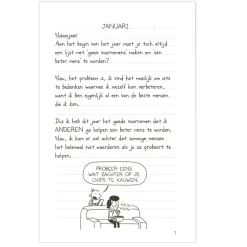 JANUARI
Nieuwjaar
Aan het begin van het jaar moet je toch altijd
een lijst met 'goede voornemens' maken om een
beter mens' te worden?
Nou, het probleem is, ik vind het moeilijk om iets
te bedenken waarmee ik mezelf kan verbeteren,
want ik ben eigenlijk al een van de beste mensen
die ik ken.
Dus ik heb dit jaar het goede voornemen dat ik
ANDEREN ga helpen een beter mens te worden.
Nou, ik kom er wel achter dat sommige mensen
het helemaal niet waarderen als je ze probeert te
helpen.
PROBEER EENS
WAT ZACHTER OP JE
CHIPS TE KAUWEN.
1